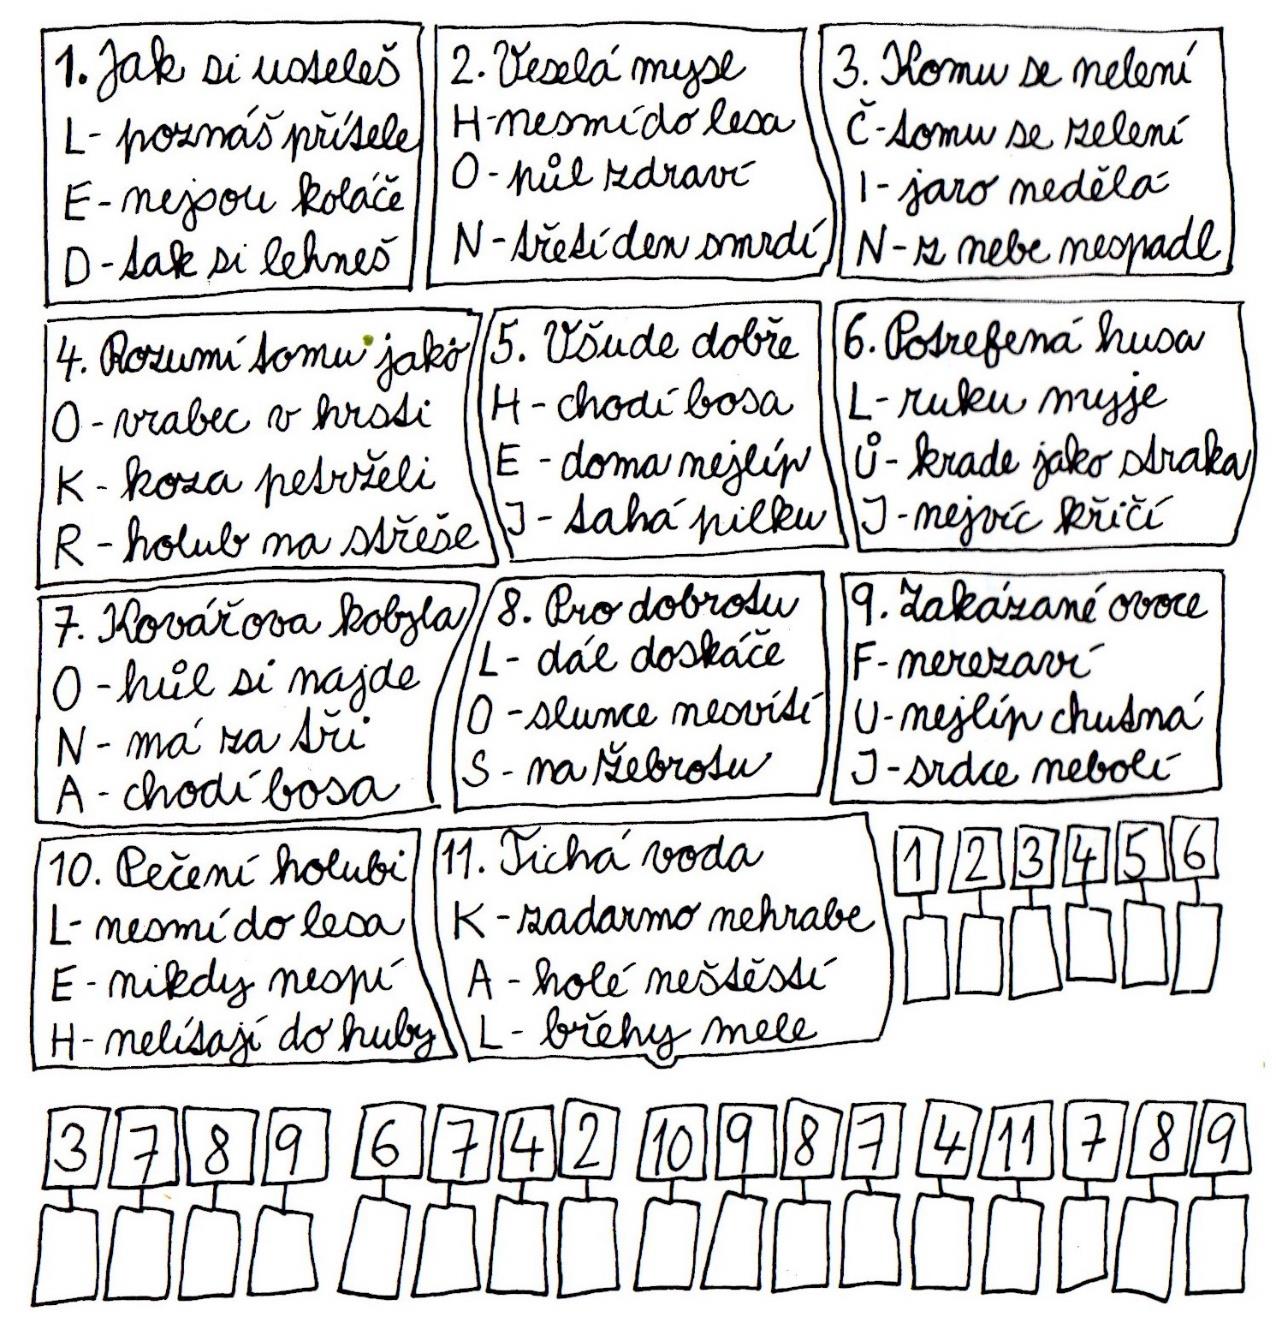 1. Jak si usteleš
L- poznáš přítele
E - nejsou koláče
D - tak si lehneš
2. Veselá mysl
H-nesmí do lesa
O - půl zdraví
N - třetí den smrdí
3. Komu se nelení
Č-tomu se zelení
I - jaro nedělá
N - z nebe nespadl
4. Rozumí tomu jako
O - vrabec v hrsti
K - koza petrželi
R - holub na střeše
5. Všude dobře
H - chodí bosa
E - doma nejlíp
J - tahá pilku
6. Potrefená husa
L - ruku myje
Ů - krade jako straka
J - nejvíc křičí
7. Kovářova kobyla
O - hůl si najde
N - má za tři
A - chodí bosa
8. Pro dobrotu
L - dál doskáče
O - slunce nesvítí
S - na žebrotu
9. Zakázané ovoce
F - nerezaví
U - nejlíp chutná
J - srdce nebolí
10. Pečení holubi
L- nesmí do lesa
E - nikdy nespí
H- nelítají do huby
11. Tichá voda
K - zadarmo nehrabe
A - holé neštěstí
L - břehy mele
1 2 3 4 5 6
3 7 8 9 6 7 4 2 10 9 8 7 4 11 7 8 9